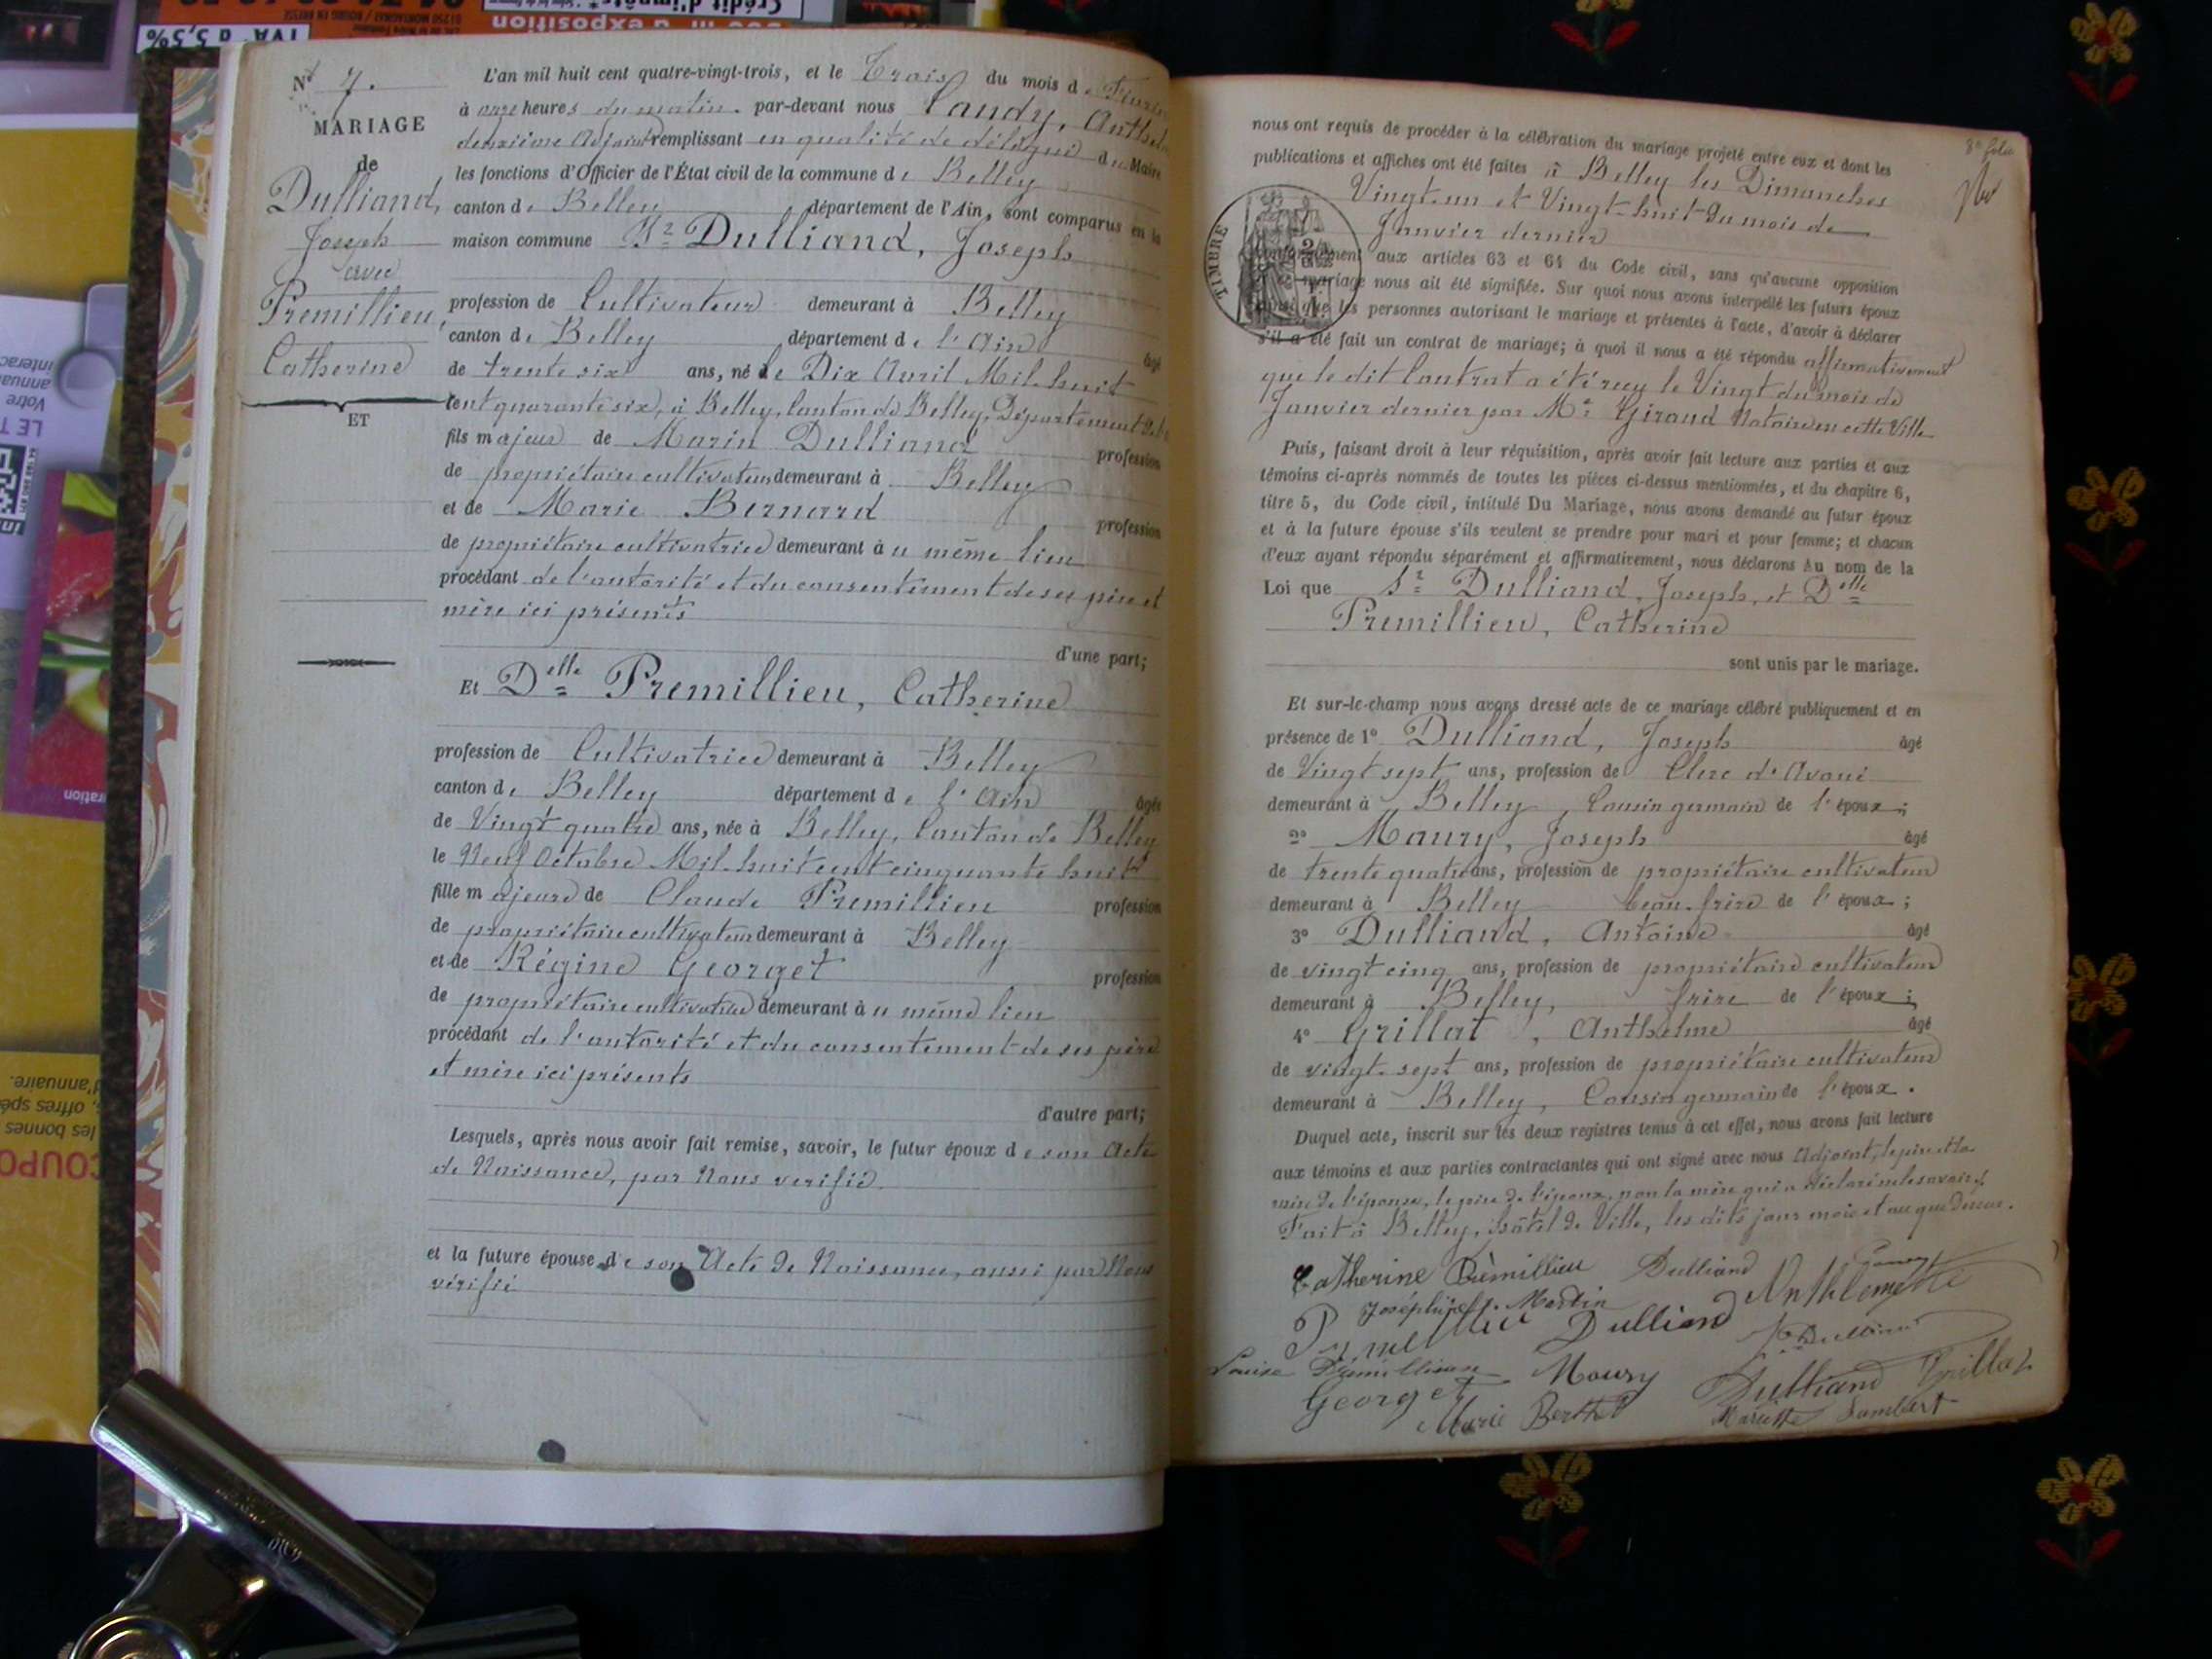 N° 7.
MARIAGE
de
Dulliand,
Joseph
avec
Premillieu,
Catherine
ET
L'an mil huit cent quatre-vingt-trois, et le Trois du mois de
à onze heures du matin. par-devant nous Candy,
deuxième Adjoint remplissant en qualité de délégué du Maire
les fonctions d'Officier de l'État civil de la commune de Belley
canton de Belley département de l'Ain, sont comparus en la
maison commune Sr Dulliand, Joseph
profession de Cultivateur demeurant à Belley
canton de Belley département de l'Ain âgé
de trente six ans, né le Dix Avril Mil huit
cent quarante six, à Belley, Canton de Belley, Département de
fils majeur de Marin Dulliand profession
de propriétaire cultivateur demeurant à Belley
et de Marie Bernard profession
de propriétaire cultivatrice demeurant à u même lieu
procédant de l'autorité et du consentement de ses père et
mère ici présents
d'une part;
Et Delle Premillieu, Catherine
profession de Cultivatrice demeurant à Belley
canton de Belley département de l'Ain âgée
de Vingt quatre ans, née à Belley, Canton de Belley
le Neuf Octobre Mil huit cent cinquante huit
fille majeure de Claude Premillieu profession
de propriétaire cultivateur demeurant à Belley
et de Régine Georget profession
de propriétaire cultivatrice demeurant à u même lieu
procédant de l'autorité et du consentement de ses père
et mère ici présents
d'autre part;
Lesquels, après nous avoir fait remise, savoir, le futur époux de son Acte
de Naissance, par Nous vérifié.
et la future épouse de son Acte de Naissance, aussi par Nous
vérifié
8e folio
nous ont requis de procéder à la célébration du mariage projeté entre eux et dont les
publications et affiches ont été faites à Belley les Dimanches
Vingt-un et Vingt-huit du mois de
Janvier dernier
TIMBRE
conformément aux articles 63 et 64 du Code civil, sans qu'aucune opposition
mariage nous ait été signifiée. Sur quoi nous avons interpellé les futurs époux
que les personnes autorisant le mariage et présentes à l'acte, d'avoir à déclarer
s'il a été fait un contrat de mariage; à quoi il nous a été répondu affirmativement
que le dit Contrat a été reçu le Vingt du mois de
Janvier dernier par Me Giraud Notaire en cette Ville
Puis, faisant droit à leur réquisition, après avoir fait lecture aux parties et aux
témoins ci-après nommés de toutes les pièces ci-dessus mentionnées, et du chapitre 6,
titre 5, du Code civil, intitulé Du Mariage, nous avons demandé au futur époux
et à la future épouse s'ils veulent se prendre pour mari et pour femme; et chacun
d'eux ayant répondu séparément et affirmativement, nous déclarons Au nom de la
Loi que Sr Dulliand, Joseph, et Delle
Premillieu, Catherine
sont unis par le mariage.
Et sur-le-champ nous avons dressé acte de ce mariage célébré publiquement et en
présence de 1° Dulliand, Joseph âgé
de Vingt sept ans, profession de Clerc d'Avoué
demeurant à Belley, Cousin germain de l'époux;
2° Maury, Joseph âgé
de trente quatre ans, profession de propriétaire cultivateur
demeurant à Belley beau-frère de l'époux;
3° Dulliand, Antoine âgé
de vingt cinq ans, profession de propriétaire cultivateur
demeurant à Belley, frère de l'époux;
4° Grillat, Anthelme âgé
de vingt-sept ans, profession de propriétaire cultivateur
demeurant à Belley, Cousin germain de l'époux.
Duquel acte, inscrit sur les deux registres tenus à cet effet, nous avons fait lecture
aux témoins et aux parties contractantes qui ont signé avec nous Adjoint, le père et la
mère de l'épouse, le père de l'époux, non la mère qui a déclaré ne le savoir.
Fait à Belley, hôtel de Ville, les dits jour mois et an que dessus.
Catherine Prémillieu Dulliand
Joséphine Martin
Dulliand
Louise Prémillieu Maury Dulliand Grillat
Georget Marie Berthet Mariette Lambert